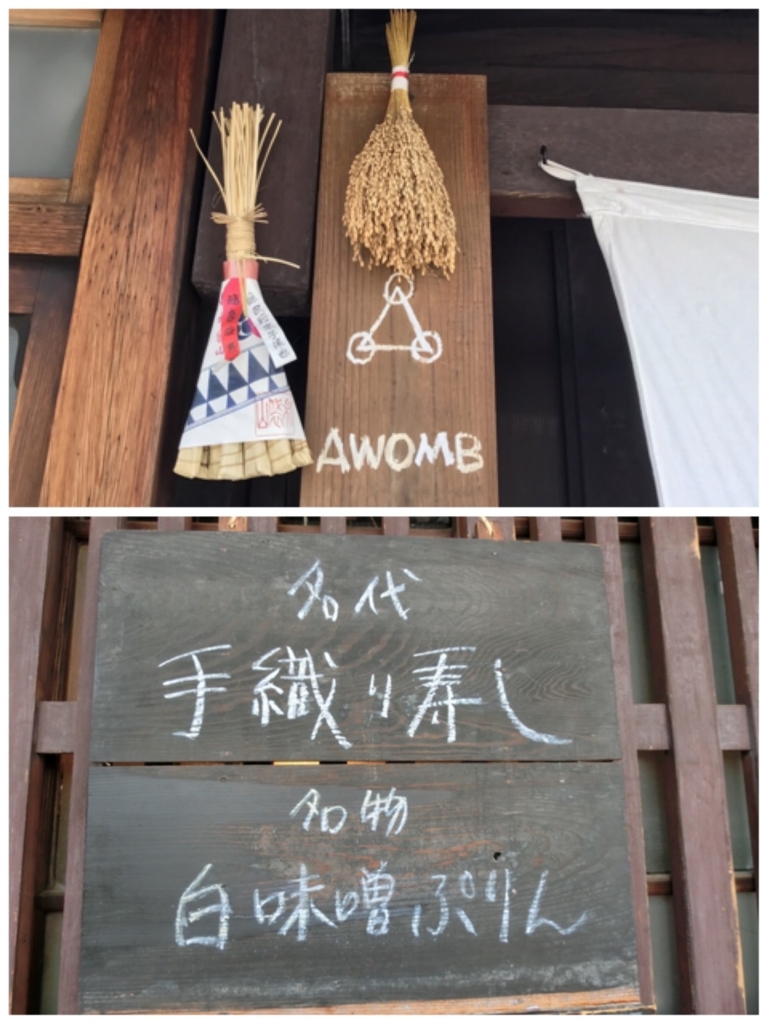 AWOMB
名代
手織り寿し
名物
白味噌ぷりん